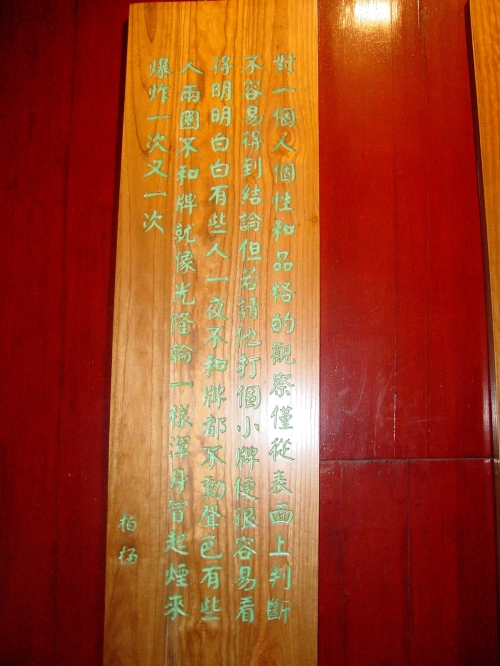 對一個人個性和品格的觀察僅從表面上判斷
不容易得到結論但若請他打個小牌便很容易看
得明明白白有些人一夜不和牌都不動聲色有些
人兩圈不和牌就像光隆輪一樣渾身冒起煙來
爆炸一次又一次
柏楊